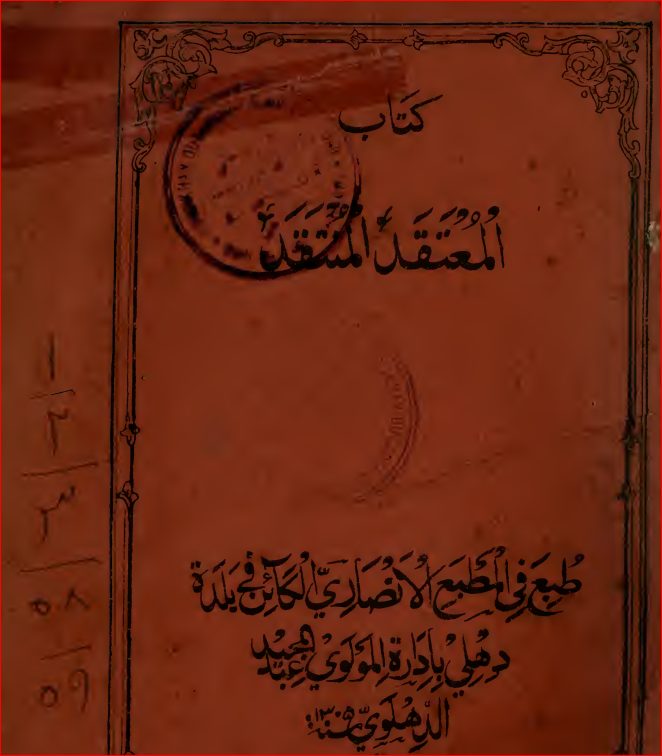 كتاب
المُعْتَقَدُ المُنْتَقَدُ
طُبِعَ فِي المَطْبَعِ الأَنْصَارِيِّ الكَائِنِ فِي بَلْدَة
دِهْلِي بِإِدَارَةِ المَوْلَوِيّ عَبْد المجيد
الدِّهْلَوِيّ
١
٢
٣
٥٨
٥٩